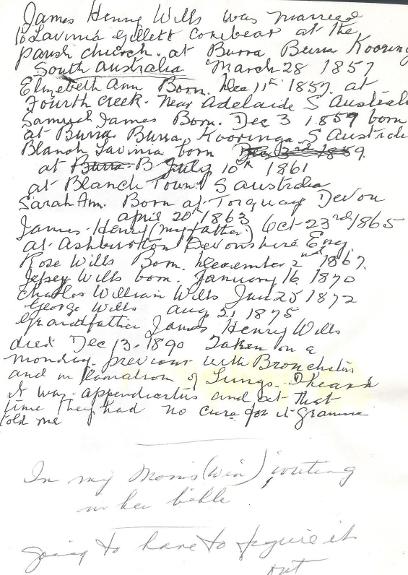 James Henry Wills was married
to Lavinia Gillett Conibear at the
parish church. at Burra Burra Kooring
South Australia March 28 1857
Elizabeth Ann Born. Dec 11th 1857. at
Fourth Creek. Near Adelaide S Australi
Samuel James Born. Dec 3 1859 born
at Burra Burra, Kooringa. S Australi
Blanch Lavinia born Dec 3rd 1859.
at Burra B July 10th 1861
at Blanch Town S Australia
Sarah Ann. Born at Torquay Devon
april 20th 1863
James. Henry (my father) Oct 23rd 1865
at Ashburton Devonshire Eng.
Rose Wills Born. December 2nd 1867.
Jessey Wills born. January 16 1870
Charles William Wills Jul 25 1872
George Wills aug 5, 1875
Grandfather James Henry Wills
died Dec 13. 1890 Taken on a
monday. previous with Bronchitis
and inflamation of Lungs. I
it was appendicitus and at that
time they had no cure for it Gramma
told me
In my Mom's (Win) writing
in her bible
going to have to figure it
out